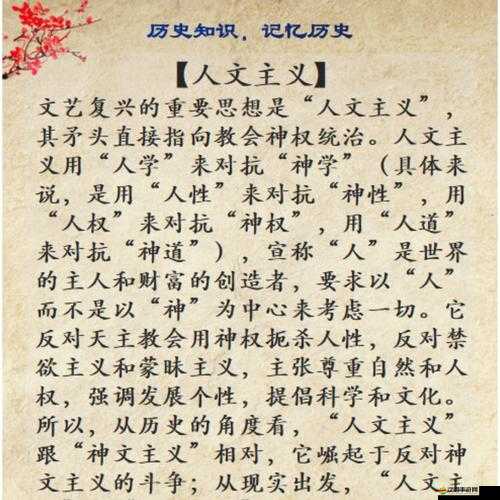 历史知识，记忆历史
【人文主义】
文艺复兴的重要思想是“人文主义”，
其矛头直接指向教会神权统治。人文主
义用“人学”来对抗“神学”（具体来
说，是用“人性”来对抗“神性”，用
“人权”来对抗“神权”，用“人道”
来对抗“神道”），宣称“人”是世界
的主人和财富的创造者，要求以“人”
而不是以“神”为中心来考虑一切。它
反对天主教会用神权扼杀人性，反对禁
欲主义和蒙昧主义，主张尊重自然和人
权，强调发展个性，提倡科学和文化。
所以，从历史的角度看，“人文主义”
跟“神文主义”相对，它崛起于反对神
文主义的斗争；从现实出发，“人文主